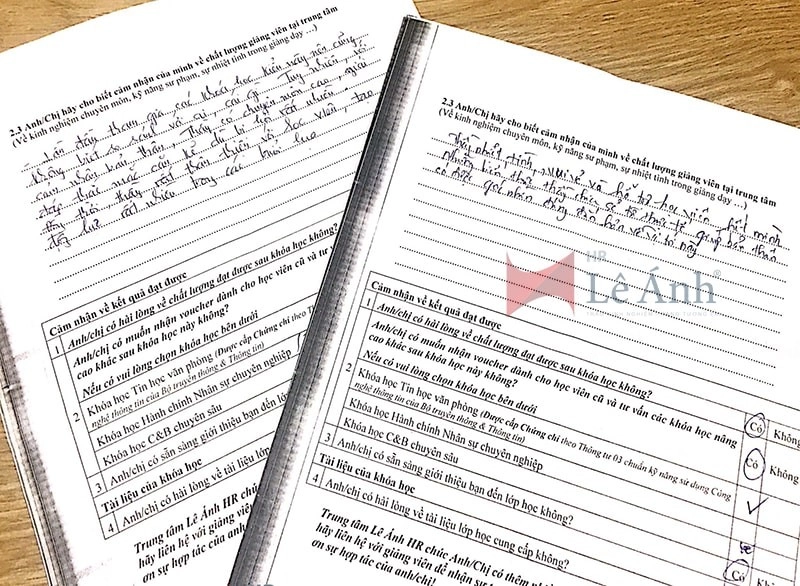 2.3 Anh/Chị hãy cho biết cảm nhận của mình về chất lượng giảng viên tại trung tâm
(Về kinh nghiệm chuyên môn, kỹ năng sư phạm, sự nhiệt tình trong giảng dạy ...)
Lần đầu tham gia các khoá học kiểu này nên cũng
không biết so sánh với ai, cái gì. Tuy nhiên, với
cảm nhận bản thân, Thầy có chuyên môn cao, giải
đáp thắc mắc cặn kẽ dù bị hỏi rất nhiều.
Đồng thời, thầy rất thân thiện với học viên, tạo
động lực rất nhiều trong các buổi học
Cảm nhận về kết quả đạt được
1 Anh/chị có hài lòng về chất lượng đạt được sau khóa học không?
Anh/chị có muốn nhận voucher dành cho học viên cũ và tư v
cao khác sau khóa học này không?
Nếu có vui lòng chọn khóa học bên dưới
2 Khóa học Tin học văn phòng (Được cấp Chứng chỉ theo
nghệ thông tin của Bộ truyền thông & Thông tin)
Khóa học Hành chính Nhân sự chuyên nghiệp
Khóa học C&B chuyên sâu
3 Anh/chị có sẵn sàng giới thiệu bạn đến lớp
Tài liệu của khóa học
4 Anh/chị có hài lòng về tài liệu lớp
Trung tâm Lê Ánh HR chúc
hãy liên hệ với giảng viên
ơn sự hợp tác của anh
2.3 Anh/Chị hãy cho biết cảm nhận của mình về chất lượng giảng viên tại trung tâm
(Về kinh nghiệm chuyên môn, kỹ năng sư phạm, sự nhiệt tình trong giảng dạy ...)
Thầy nhiệt tình, chia sẻ và hỗ trợ học viên hết mình
những kiến thức thầy chia sẻ từ thực tế giúp bản thân
có được góc nhìn đúng đắn hơn về vị trí này
HR
Lê Ánh®
Cảm nhận về kết quả đạt được
1 Anh/chị có hài lòng về chất lượng đạt được sau khóa học không?
Có Không
Anh/chị có muốn nhận voucher dành cho học viên cũ và tư vấn các khóa học nâng
cao khác sau khóa học này không?
Có Không
Nếu có vui lòng chọn khóa học bên dưới
2 Khóa học Tin học văn phòng (Được cấp Chứng chỉ theo Thông tư 03 chuẩn kỹ năng sử dụng Công
nghệ thông tin của Bộ truyền thông & Thông tin)
Khóa học Hành chính Nhân sự chuyên nghiệp
Khóa học C&B chuyên sâu
3 Anh/chị có sẵn sàng giới thiệu bạn đến lớp học không?
Tài liệu của khóa học
4 Anh/chị có hài lòng về tài liệu lớp học cung cấp không?
Có Kh
Trung tâm Lê Ánh HR chúc Anh/Chị có thêm n
hãy liên hệ với giảng viên để nhận sự
ơn sự hợp tác của anh/chị!